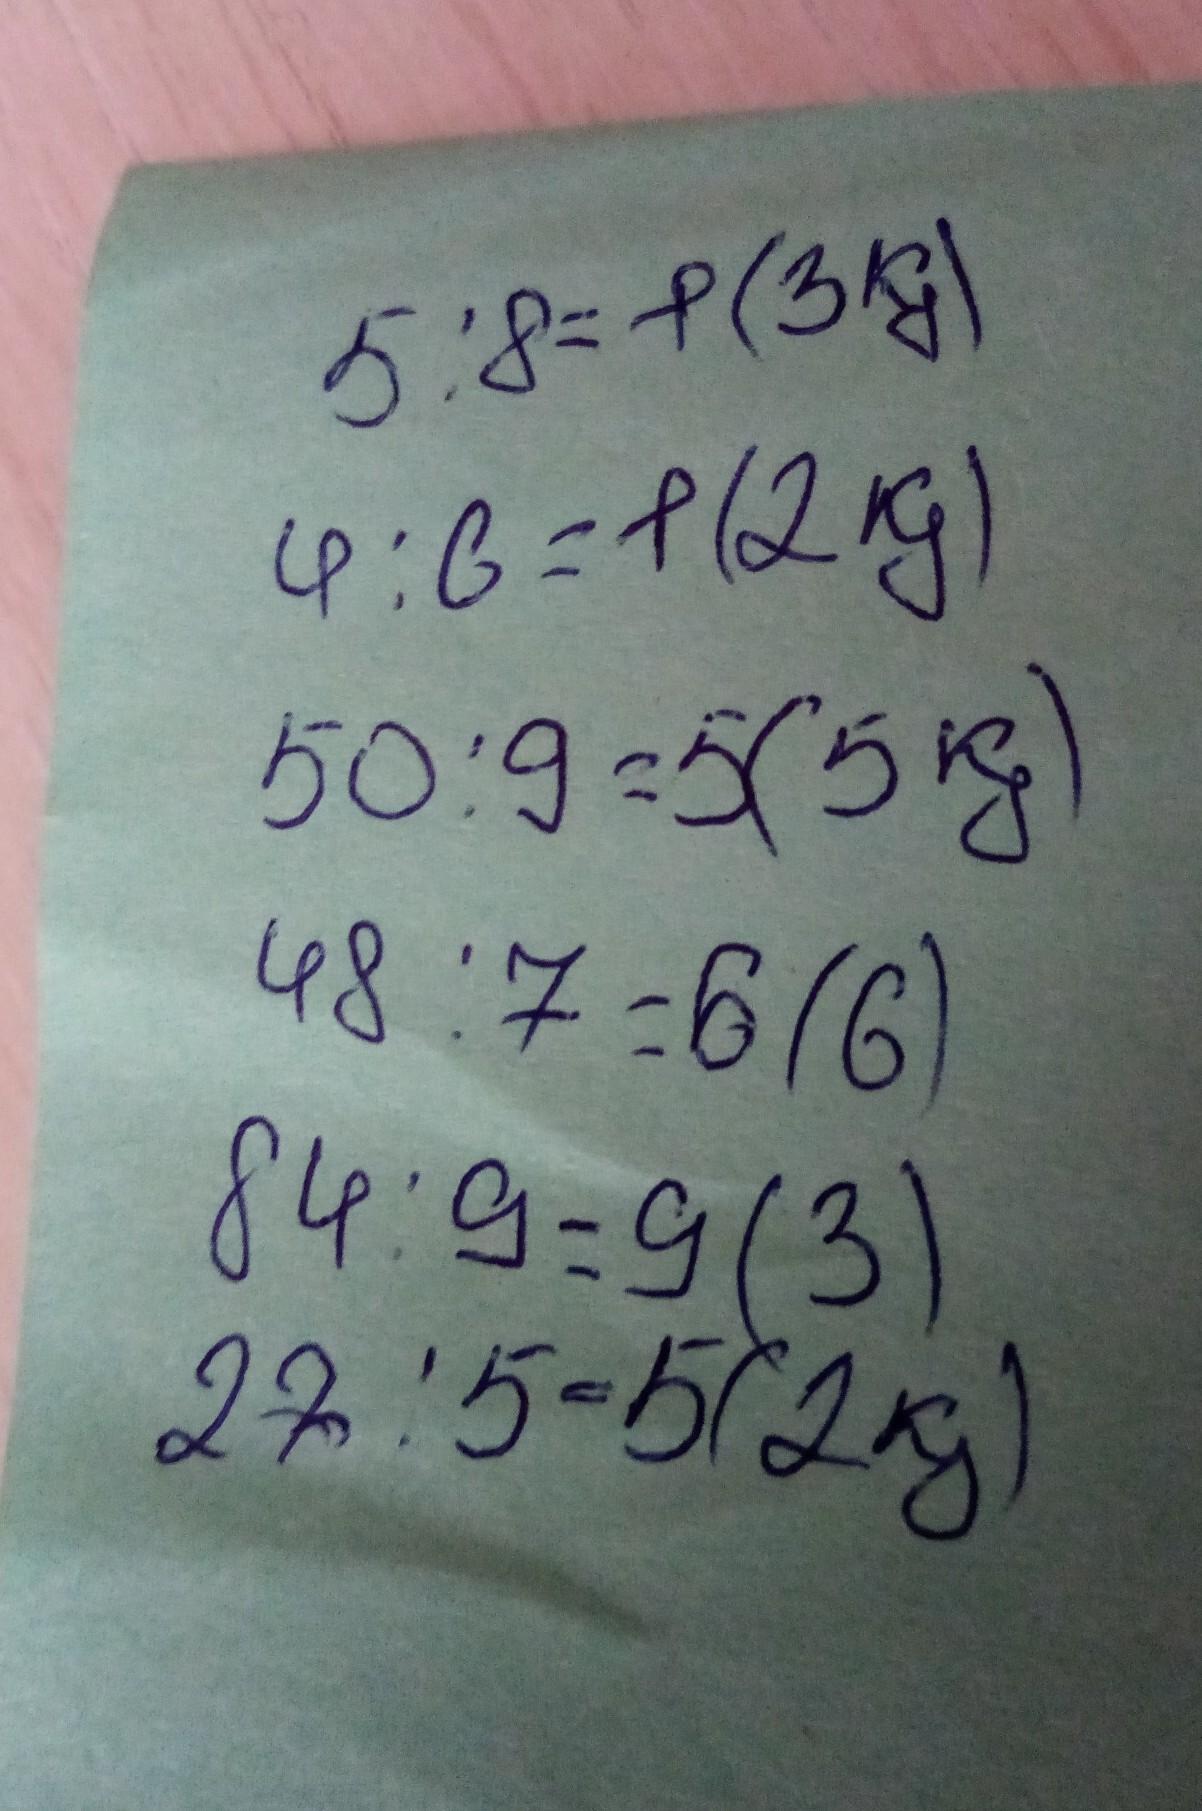 5:8=1(3кд)
4:6=1(2кд)
50:9=5(5кд)
48:7=6(6)
84:9=9(3)
27:5=5(2кд)